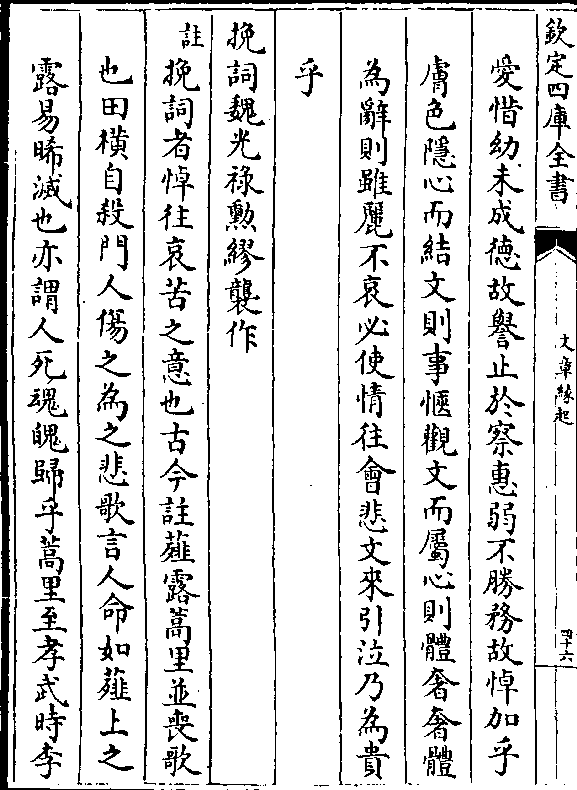 欽定四庫全書
文章緣起
四十六
愛惜幼未成德故譽止於察惠弱不勝務故悼加乎
膚色隱心而結文則事愜觀文而屬心則體奢奢體
為辭則雖麗不哀必使情往會悲文來引泣乃為貴
乎
挽詞魏光祿勲繆襲作
註挽詞者悼往哀苦之意也古今註薤露蒿里並喪歌
也田橫自殺門人傷之為之悲歌言人命如薤上之
露易晞滅也亦謂人死魂魄歸乎蒿里至孝武時李